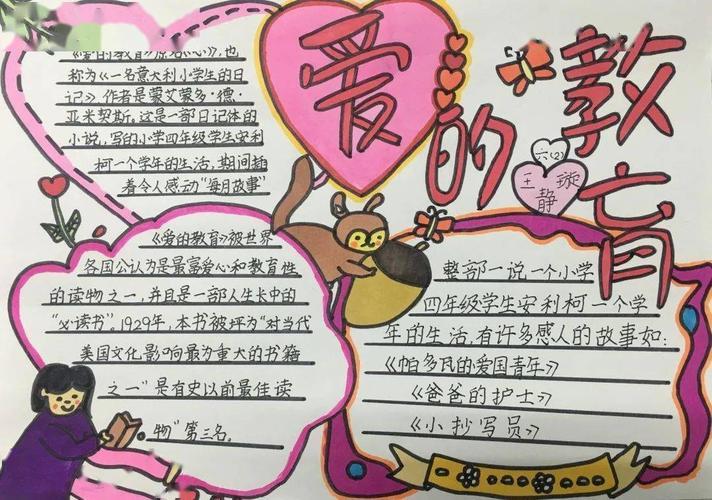 《爱的教育》原名《心》,也
称为《一名意大利小学生的日
记》,作者是蒙艾蒙多·德·
亚米契斯,这是一部日记体的
小说,写的小学四年级学生安利
柯一个学年的生活,期间插
着令人感动“每月故事”
爱
的
教
育
六(2)
王静璇
《爱的教育》被世界
各国公认为是最富爱心和教育性
的读物之一,并且是一部人生长中的
“必读书”,1929年,本书被坪为“对当代
美国文化影响最为重大的书籍
之一”是有史以前最佳读
物”第三名。
整部一说一个小学
四年级学生安利柯一个学
年的生活,有许多感人的故事如:
《帕多瓦的爱国青年》
《爸爸的护士》
《小抄写员》